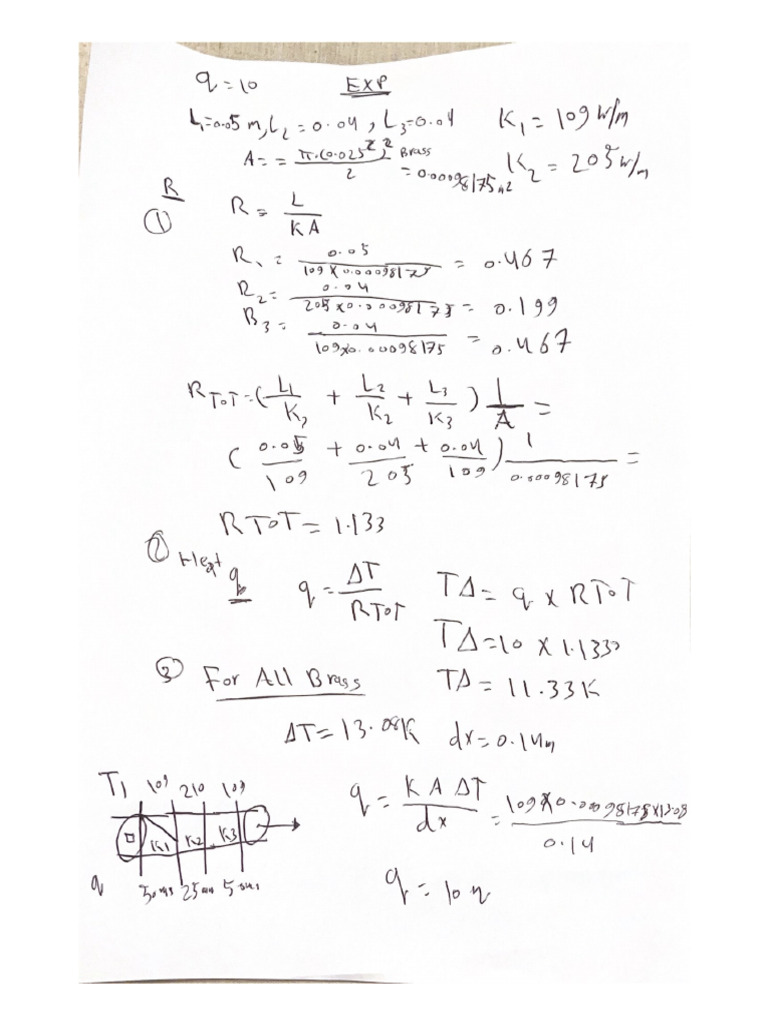 q = 10 EXP
L₁=0.05 m, L₂ = 0.04, L₃=0.04 K₁ = 109 W/m
A = = π.(0.025²)²/2 Brass = 0.00098175 m2 K₂ = 205 W/m
R
① R = L/KA
R₁ = 0.05/109 x 0.00098175 = 0.467
R₂ = 0.04/205x0.00098175 = 0.199
B₃ = 0.04/109x0.00098175 = 0.467
R TOT = (L₁/K₁ + L₂/K₂ + L₃/K₃) 1/A =
(0.05/109 + 0.04/205 + 0.04/109) 1/0.00098175 =
R TOT = 1.133
② Heat q q = ΔT/RTOT TΔ = q x RTOT
TΔ=10 x 1.1330
③ For All Brass TΔ = 11.33K
ΔT=13.08K dx=0.14m
T₁ 109 210 109
q = K A ΔT/dx = 109x0.00098175x13.08/0.14
K1 K2 K3
q 25 5
q = 10